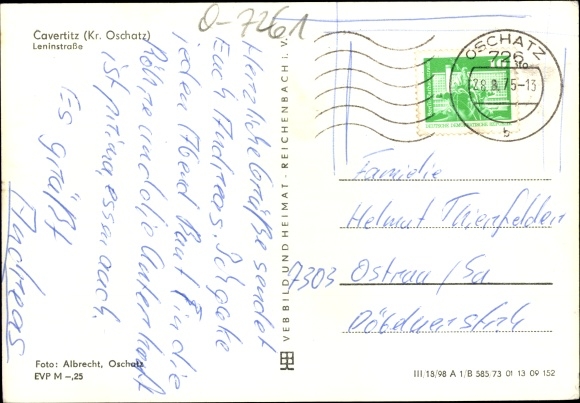 O-7261
Cavertitz (Kr. Oschatz)
Leninstraße
Herzliche Grüße sendet
Euch Andreas. Ich gehe
jeden Abend Punkt in die
und die Unterkunft
ist prima, essen auch.
Es grüßt
Andreas
Foto: Albrecht, Oschatz
EVP M –,25
VEB BILD UND HEIMAT · REICHENBACH i. V.
OSCHATZ
726
28.8.75-13
b
DEUTSCHE DEMOKRATISCHE
Familie
Helmut Thierfelder
7303 Ostrau/Sa
Döbelnerstr
III/18/98 A 1/B 585/73 01 13 09 152